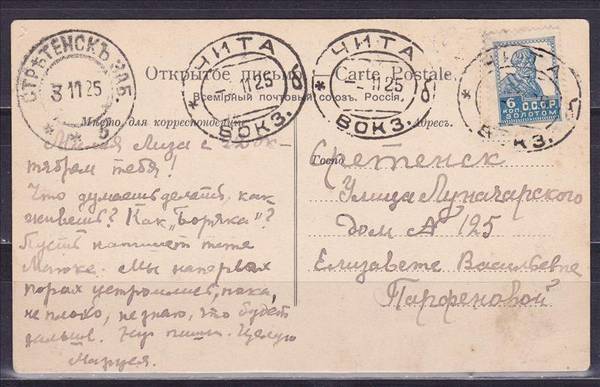 СТРѢТЕНСКЪ ЗАБ.
3 11 25
* * б
ЧИТА б
- - 11 25
* ВОКЗ.
ЧИТА б
- - 11 25
* ВОКЗ.
6 КОП С.С.С.Р.
ЗОЛОТОМ
Открытое письмо. — Carte Postale.
Всемірный почтовый союзъ. Россія.
Мѣсто для корреспонденціи
Адресъ.
Милая Лиза с 22 Ок-
тябрем тебя!
Что думаешь делать, как
живешь? Как "Боряка"? 
Пусть напишет тете
Мы на первых
порах устроились, пока,
не плохо, не знаю, что будет
дальше. Ну пиши. Целую
Маруся.
Сретенск
Улица Луначарского
Дом № 125
Елизавете Васильевне
Парфеновой